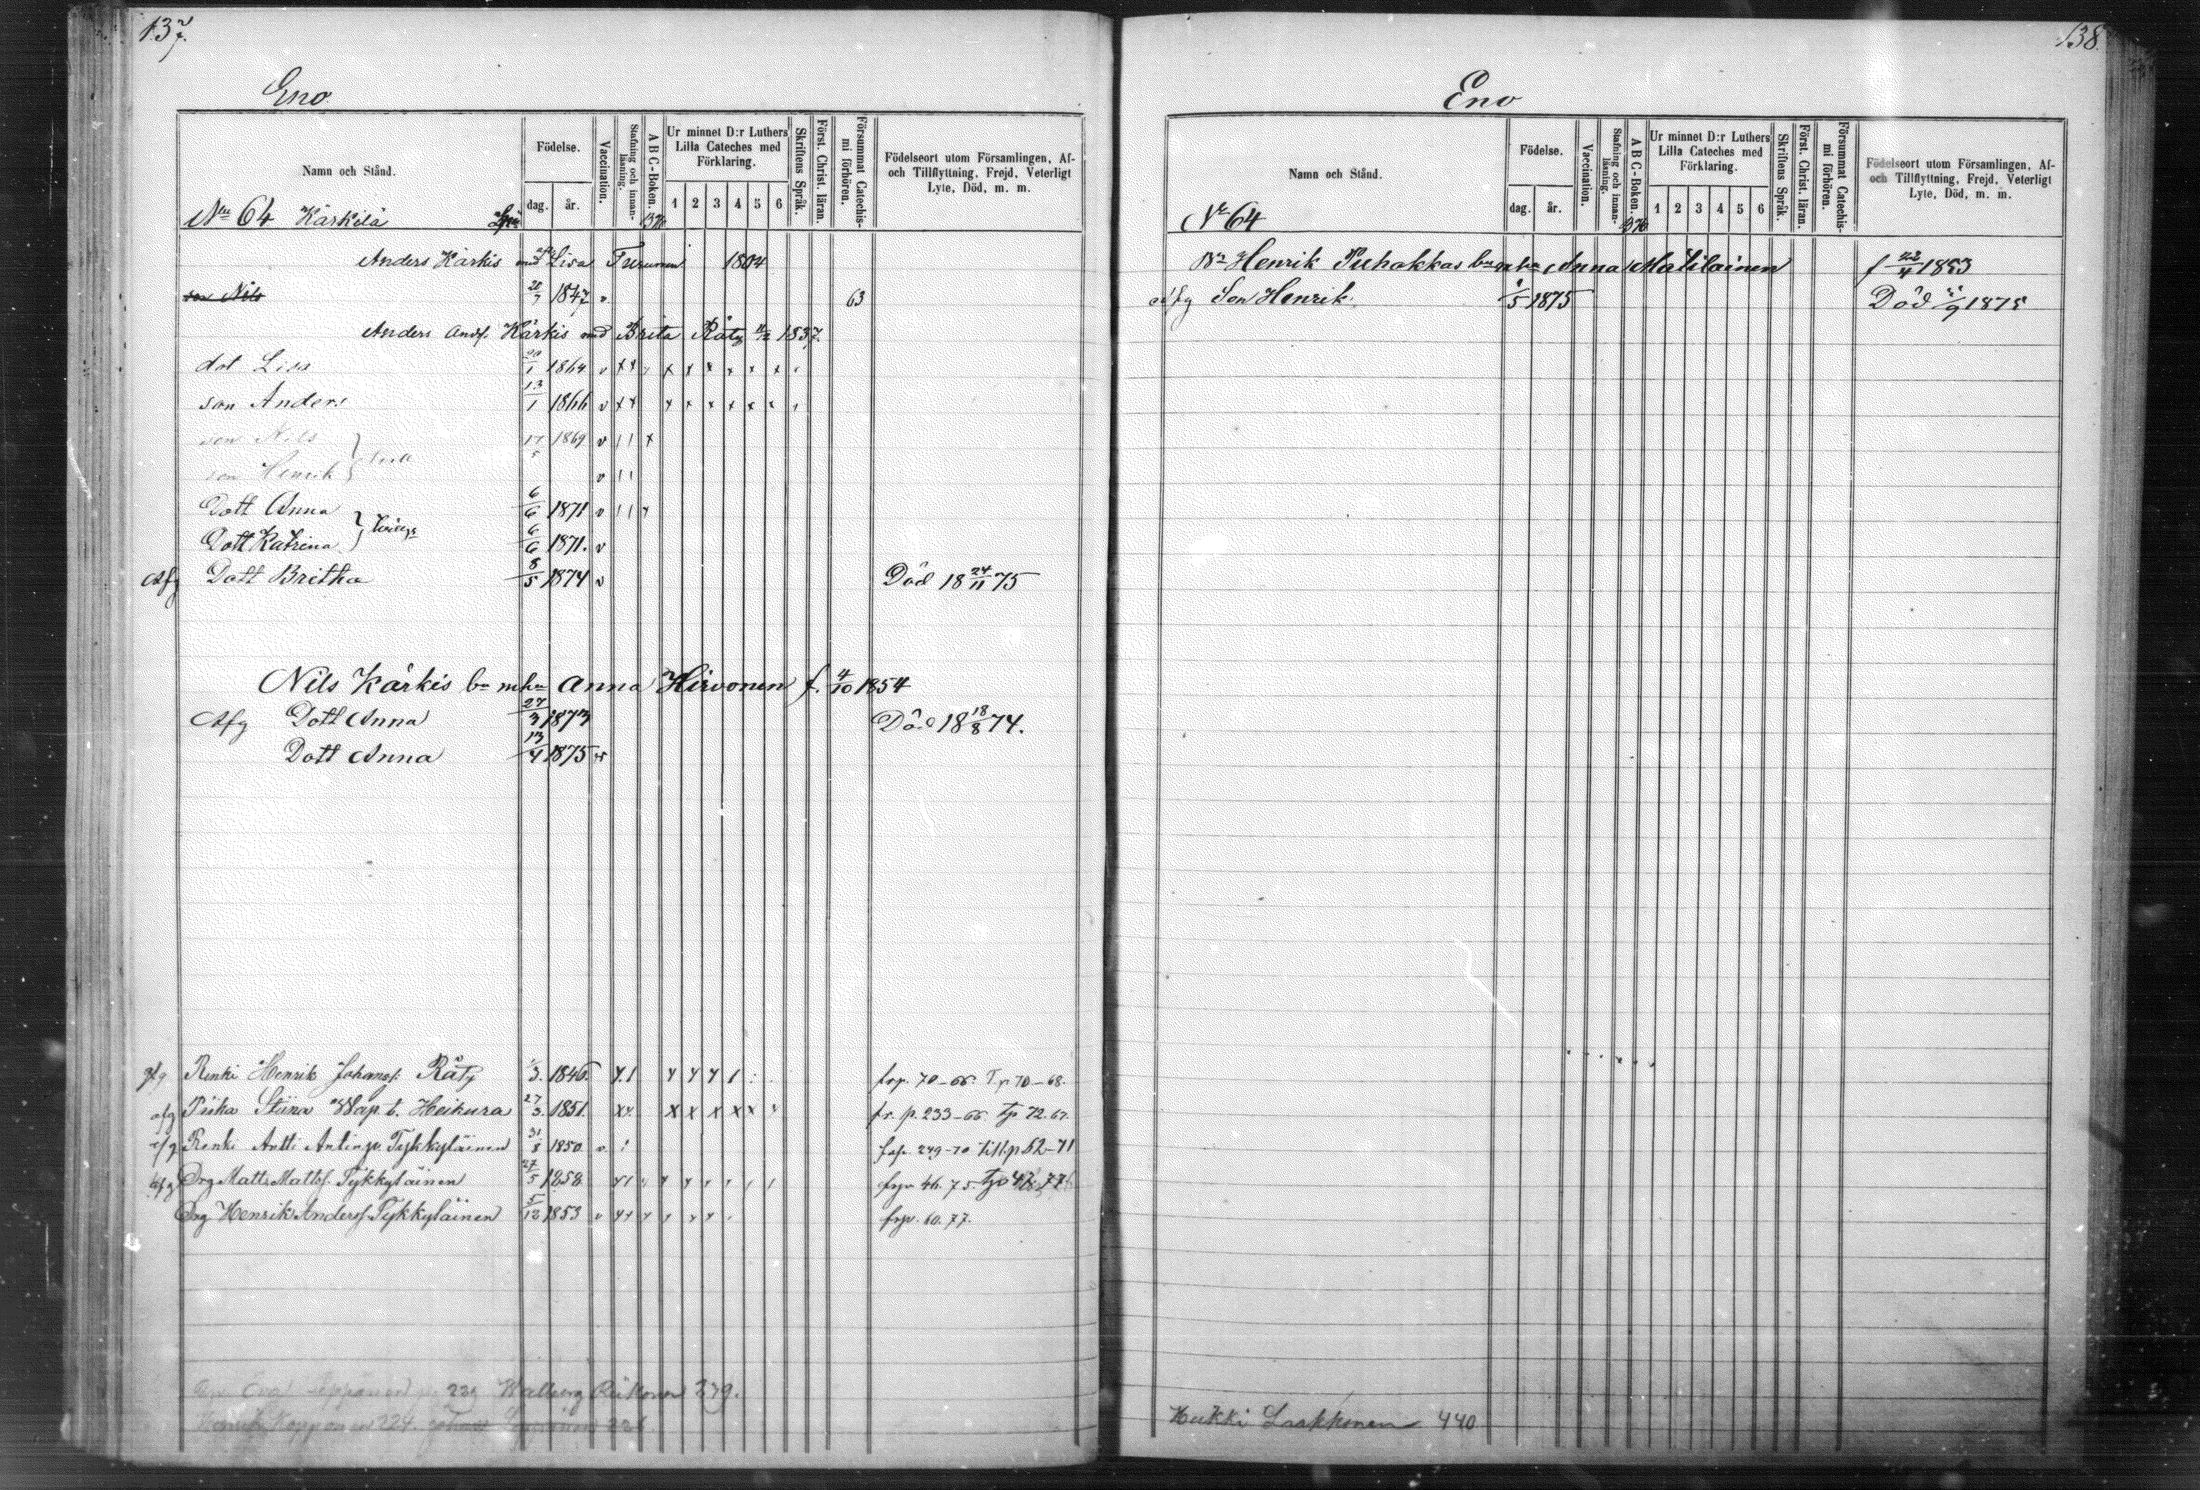 137.
Eno
Namn och Stånd.
Födelse.
dag.
år.
Vaccination.
Stafning och innan-läsning.
A B C-Boken.
Ur minnet D:r Luthers Lilla Cateches med Förklaring.
1 2 3 4 5 6
Skriftens Språk.
Först. Christ. läran.
Försummat Catechismi förhören.
Födelseort utom Församlingen, Af- och Tillflyttning, Frejd, Veterligt Lyte, Död, m. m.
No 64 Kärkilä
Anders Kärkis Lisa Turunen 1804
son Nils 28/7 1847 v 63
Anders Andf. Kärkis med Brita Räty 1837.
dot Lisa 20/1 1864 v x x x x x x x x
son Anders 13/1 1866 v x x x x x x x x
son Nils 17/5 1869 v 1 1 x
son Henrik v 1 1
Dott Anna 6/6 1871 v 1 1
Dott Katrina 6/6 1871. v
Afg Dott Britha 8/5 1874 v Död 18 24/11 75
Nils Kärkis Anna Hirvonen f. 4/10 1854
Afg Dott Anna 27/3 1873 Död 18 18/8 74.
Dott Anna 13/4 1875 v
afg Renki Henrik Johansf. Räty 3. 1846. frp. 70-66. Tp 70-68.
afg Piika Stiina Heikura 27/3. 1851. fr. p. 233-66. tp 72. 67.
afg Renki Antti Antinp. Tykkyläinen 31/8 1850 v frp. 249-70 till p 62-71
afg Drg Matts Mattsf. Tykkyläinen 27/5 1858 frp 46. 75.
Drg Henrik Andersf. Tykkyläinen 5/12 1853 v frp. 60. 77.
229 Walborg 239.
Henrik Kopponen 224.
138.
Eno
Namn och Stånd.
Födelse.
dag.
år.
Vaccination.
Stafning och innan-läsning.
A B C-Boken.
Ur minnet D:r Luthers Lilla Cateches med Förklaring.
1 2 3 4 5 6
Skriftens Språk.
Först. Christ. läran.
Försummat Catechismi förhören.
Födelseort utom Församlingen, Af- och Tillflyttning, Frejd, Veterligt Lyte, Död, m. m.
No 64
Henrik Puhakkas Anna Matilainen f 22/4 1853
afg Son Henrik. 1/5 1875 Död 9 1875
Heikki Laakkonen 440